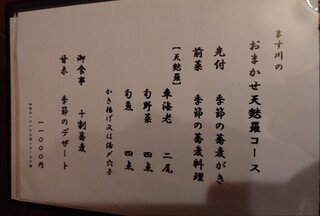 ます川の
おまかせ天麩羅コース
先付 季節の蕎麦がき
前菜 季節の蕎麦料理
【天麩羅】
車海老 二尾
旬野菜 四点
旬魚 四点
かき揚げ又は海〆穴子
御食事 十割蕎麦
甘未 季節のデザート
一一〇〇〇円